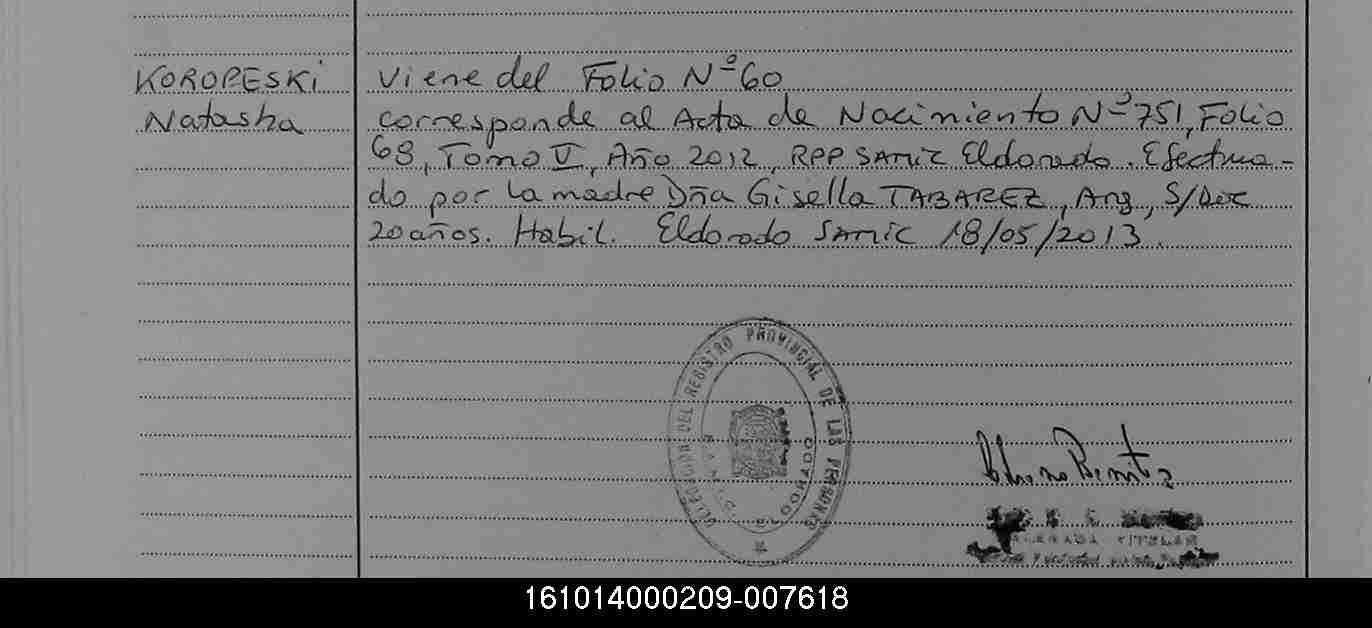 KOROPESKI
Natasha
Viene del Folio Nº 60
corresponde al Acta de Nacimiento Nº 751, Folio
68, Tomo V, Año 2012, RPP SAMIC Eldorado. Efectua-
do por la madre Dña Gisella TABAREZ, Arg, S/Doc
20 años. Habil. Eldorado SAMIC 18/05/2013.
DELEGACION DEL REGISTRO PROVINCIAL DE LAS PERSONAS
ELDORADO
161014000209-007618